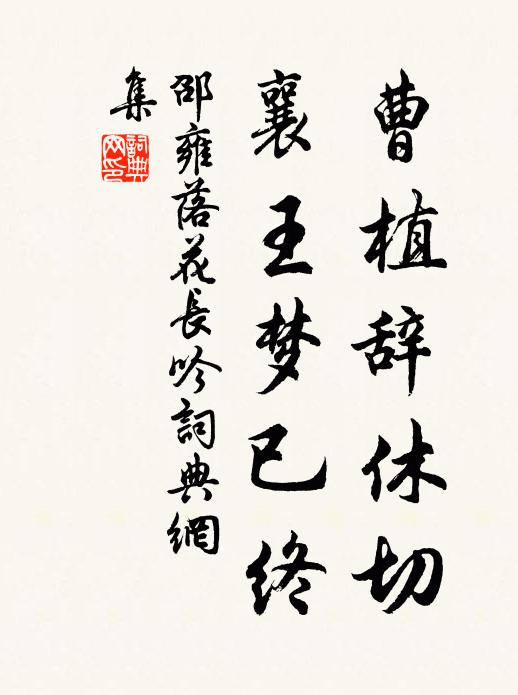 曹植辞休切
襄王梦已终
邵雍落花長吟詞典網
集
詞典
网印